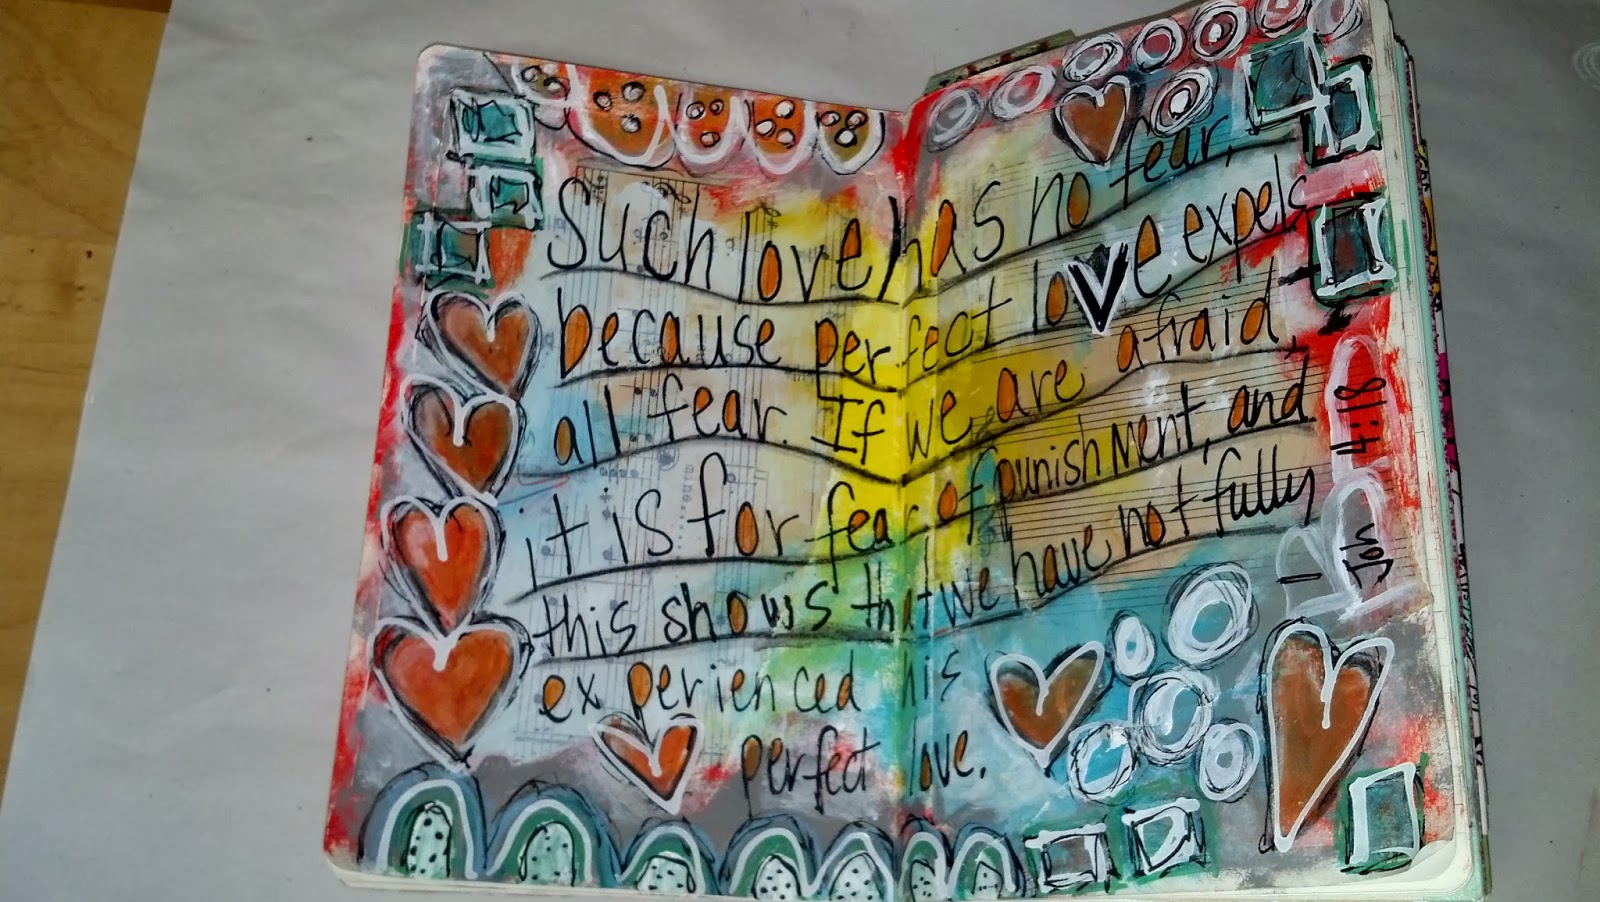 Such love has no fear,
because perfect love expels
all fear. If we are afraid,
it is for fear of punishment, and
this shows that we have not fully
experienced his
perfect love.
1 Joh 4:18